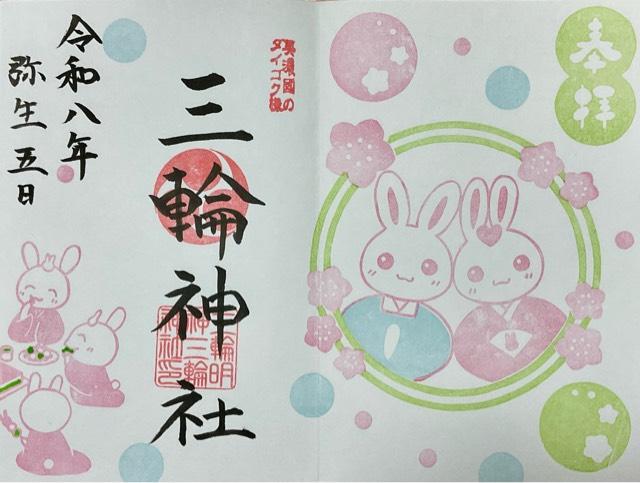 奉拝
美濃國の
ダイコク様
三輪神社
輪明
神三輪
令和八年
弥生五日